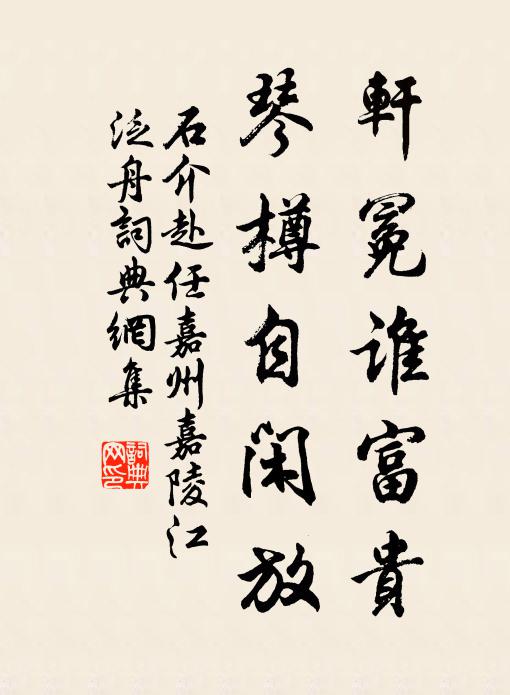 軒冕誰富貴
琴樽自閑放
石介赴任嘉州嘉陵江
泛舟詞典網集
詞典
网印